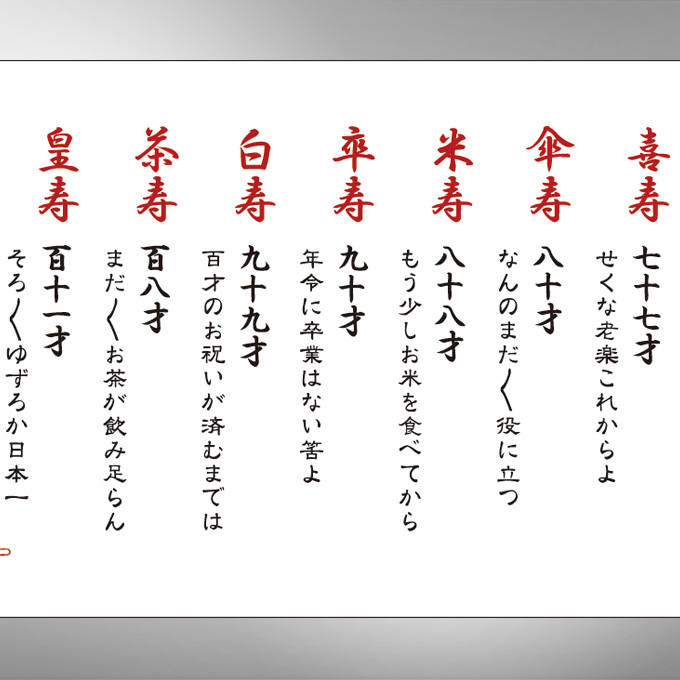 喜寿
七十七才
せくな老楽これからよ
傘寿
八十才
なんのまだ〱役に立つ
米寿
八十八才
もう少しお米を食べてから
卒寿
九十才
年令に卒業はない筈よ
白寿
九十九才
百才のお祝いが済むまでは
茶寿
百八才
まだ〱お茶が飲み足らん
皇寿
百十一才
そろ〱ゆずろか日本一